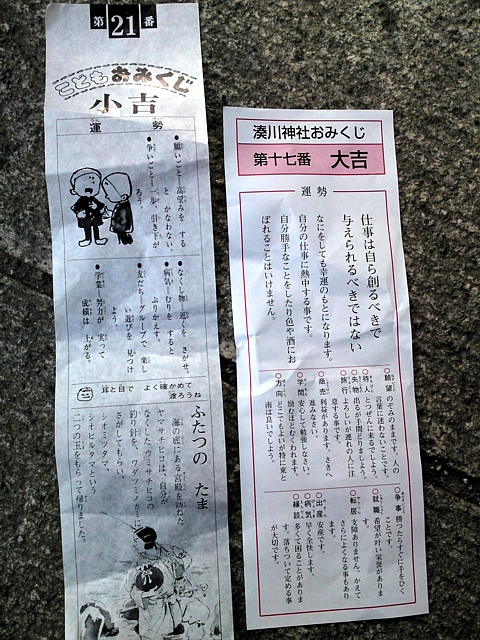 第21番
こどもおみくじ
小吉
運勢
●願いごと―高望みを する
と かなわない。
●争いごと―一歩 引き下が
ろう。
●なくし物―近くを さがせ。
●病気―むりを すると
ぶりかえす。
●友だち―グループで 楽し
い遊びを 見つけ
よう。
●学業―努力が 実って
成績は 上がる。
耳と目で よく確かめて
渡ろうね
ふたつの たま
海の底にある宮殿を訪ねた
ヤマサチヒコは、自分が
なくしたウミサチヒコの
釣り針を、ワダツミノカミに
さがしてもらい、
シオミツタマ、
シオヒルタマという
二つの玉をもらって帰りました。
湊川神社おみくじ
第十七番 大吉
運勢
仕事は自ら創るべきで
与えられるべきではない
なにをしても幸運のもとになります。
自分の仕事に熱中する事です。
自分勝手なことをしたり色や酒にお
ぼれることはいけません。
○願望 のぞみのままです。人の
言葉に迷わないことです。
○待人 とつぜんに来るでしょう。
○失物 出るが手間どりましょう。
○旅行 よろしいが連れの人に注
意する事です。
○商売 利益があります。さきへ
進みなさい。
○学問 安心して勉強しなさい。
励むほどむくわれます。
○方向 どこでもよいが特に東と
南は良いでしょう。
○争事 勝ったらすぐに手をひく
ことです。
○就職 希望が叶い栄誉がありま
す。
○転居 支障ありません。かえて
さらによくなる事もあり
ます。
○出産 安産です。
○病気 早く全快します。
○縁談 多くて困ることがありま
す。落ちついて定める事
が大切です。